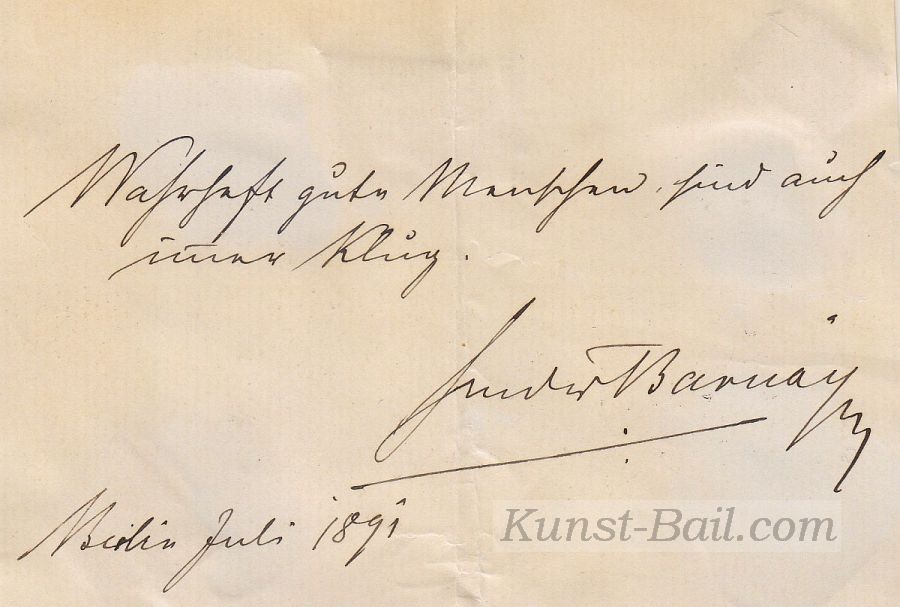 Wahrhaft gute Menschen, sind auch
im̅er klug.
Ludw Barnay
Berlin Juli 1891
Kunst-Bail.com